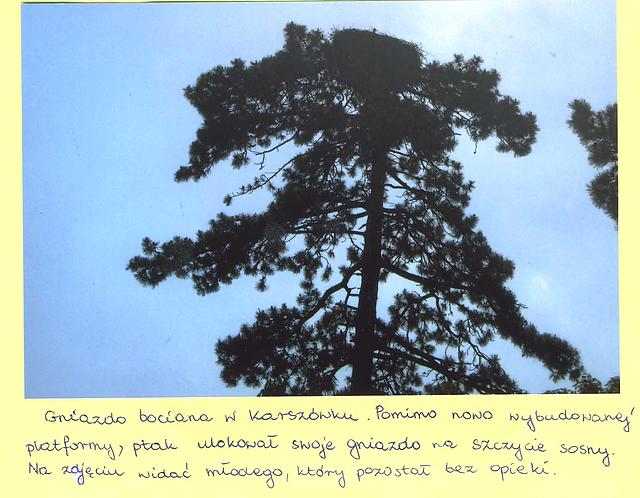 Gniazdo bociana w Karszówku. Pomimo nowo wybudowanej
platformy, ptak ulokował swoje gniazdo na szczycie sosny.
Na zdjęciu widać młodego, który pozostał bez opieki.